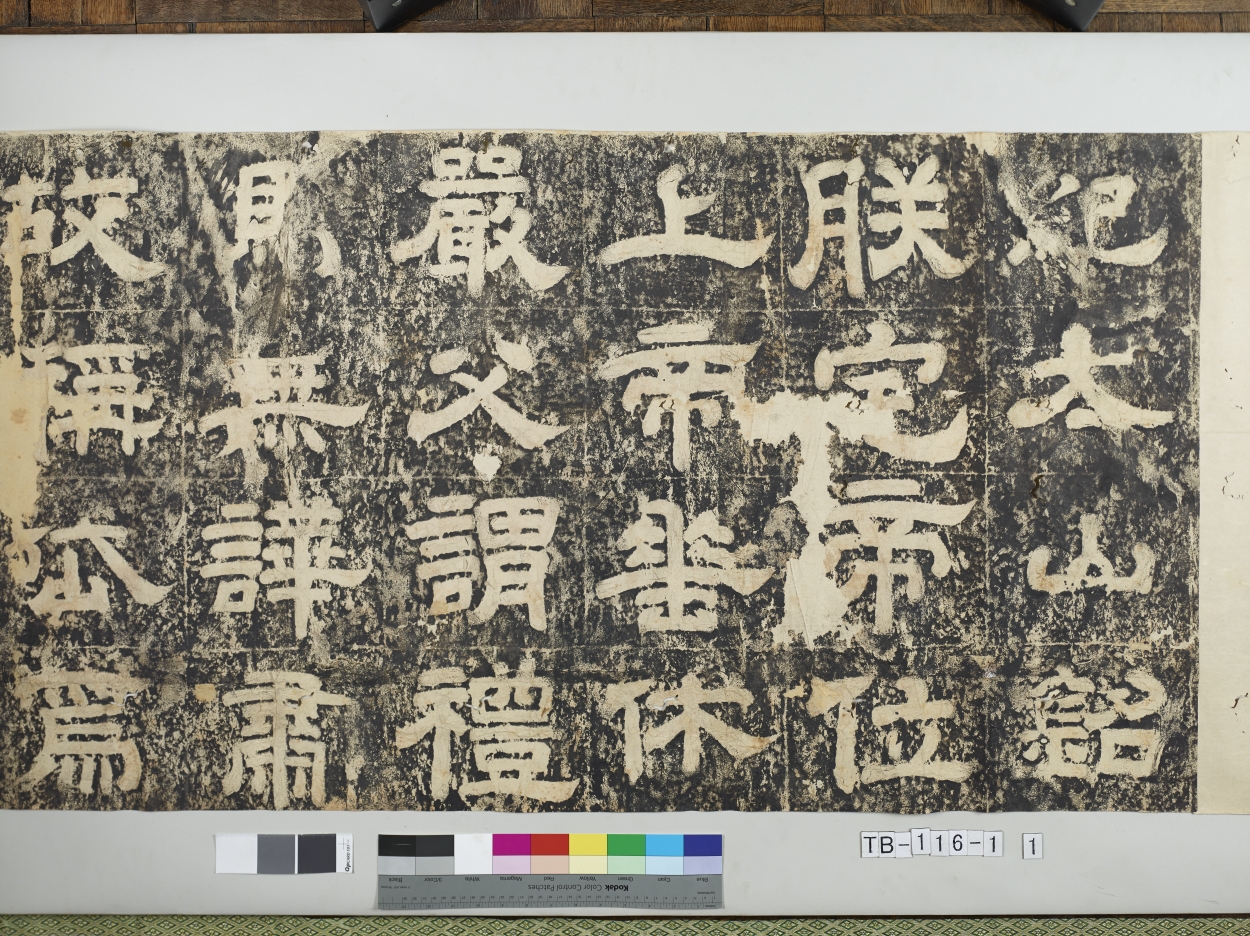 紀太山銘
朕宅帝位
上帝垂休
嚴父謂禮
無譁肅
故稱岱爲
TB-116-1 1
Kodak Color Control Patches
Blue Cyan Green Yellow Red Magenta White 3/Color Black